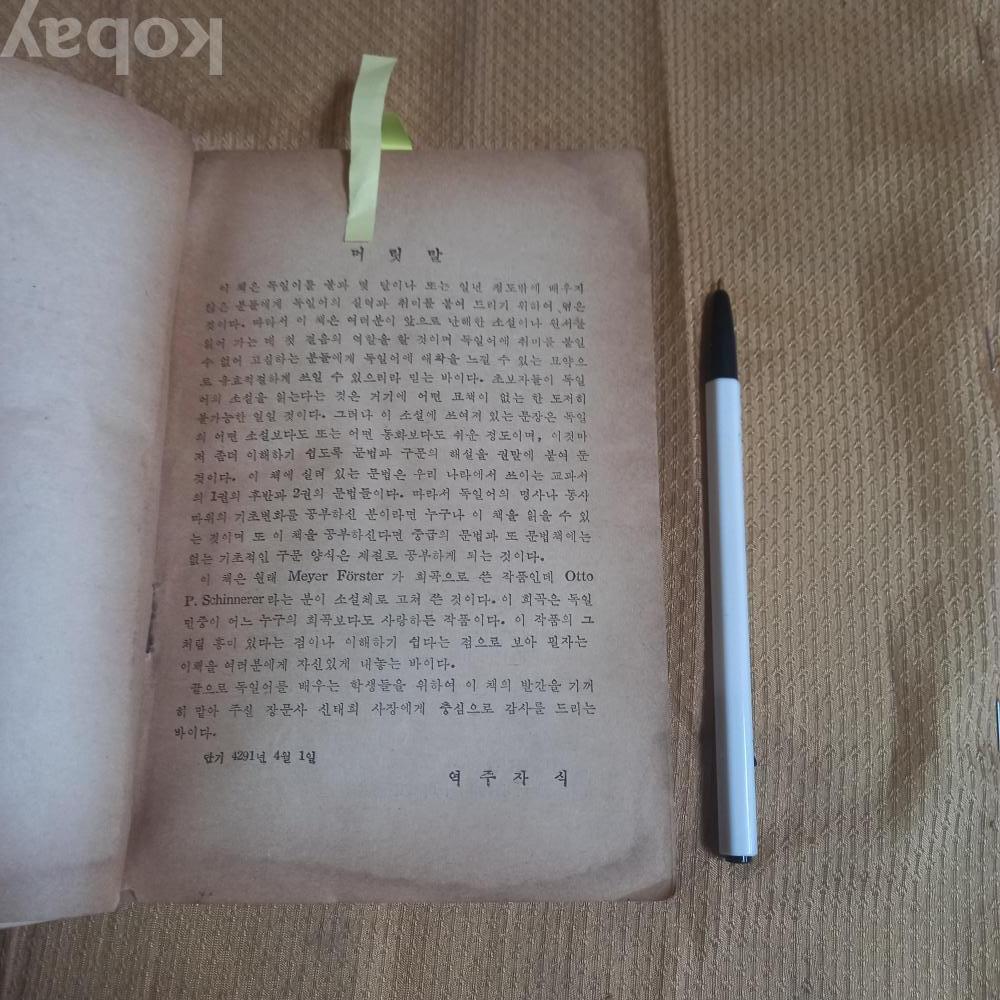 kobay
머 릿 말
이 책은 독일어를 불과 몇 달이나 또는 일년 정도밖에 배우지
않은 분들에게 독일어의 실력과 취미를 붙여 드리기 위하여 엮은
것이다. 따라서 이 책은 여러분이 앞으로 난해한 소설이나 원서를
읽어 가는 데 첫 걸음의 역할을 할 것이며 독일어에 취미를 붙일
수 없어 고심하는 분들에게 독일어에 애착을 느낄 수 있는 묘약으
로 유효적절하게 쓰일 수 있으리라 믿는 바이다. 초보자들이 독일
어의 소설을 읽는다는 것은 거기에 어떤 묘책이 없는 한 도저히
불가능한 일일 것이다. 그러나 이 소설에 쓰여져 있는 문장은 독일
의 어떤 소설보다도 또는 어떤 동화보다도 쉬운 정도이며, 이것마
저 좀더 이해하기 쉽도록 문법과 구문의 해설을 권말에 붙여 둔
것이다. 이 책에 실려 있는 문법은 우리 나라에서 쓰이는 교과서
의 1권의 후반과 2권의 문법들이다. 따라서 독일어의 명사나 동사
따위의 기초변화를 공부하신 분이라면 누구나 이 책을 읽을 수 있
는 것이며 또 이 책을 공부하신다면 중급의 문법과 또 문법책에는
없는 기초적인 구문 양식은 제절로 공부하게 되는 것이다.
이 책은 원래 Meyer Förster 가 희곡으로 쓴 작품인데 Otto
P. Schinnerer라는 분이 소설체로 고쳐 쓴 것이다. 이 희곡은 독일
민중이 어느 누구의 희곡보다도 사랑하든 작품이다. 이 작품의 그
처럼 흥미 있다는 점이나 이해하기 쉽다는 점으로 보아 필자는
이책을 여러분에게 자신있게 내놓는 바이다.
끝으로 독일어를 배우는 학생들을 위하여 이 책의 발간을 기꺼
히 맡아 주실 장문사 신태희 사장에게 충심으로 감사를 드리는
바이다.
단기 4291년 4월 1일
역 주 자 식